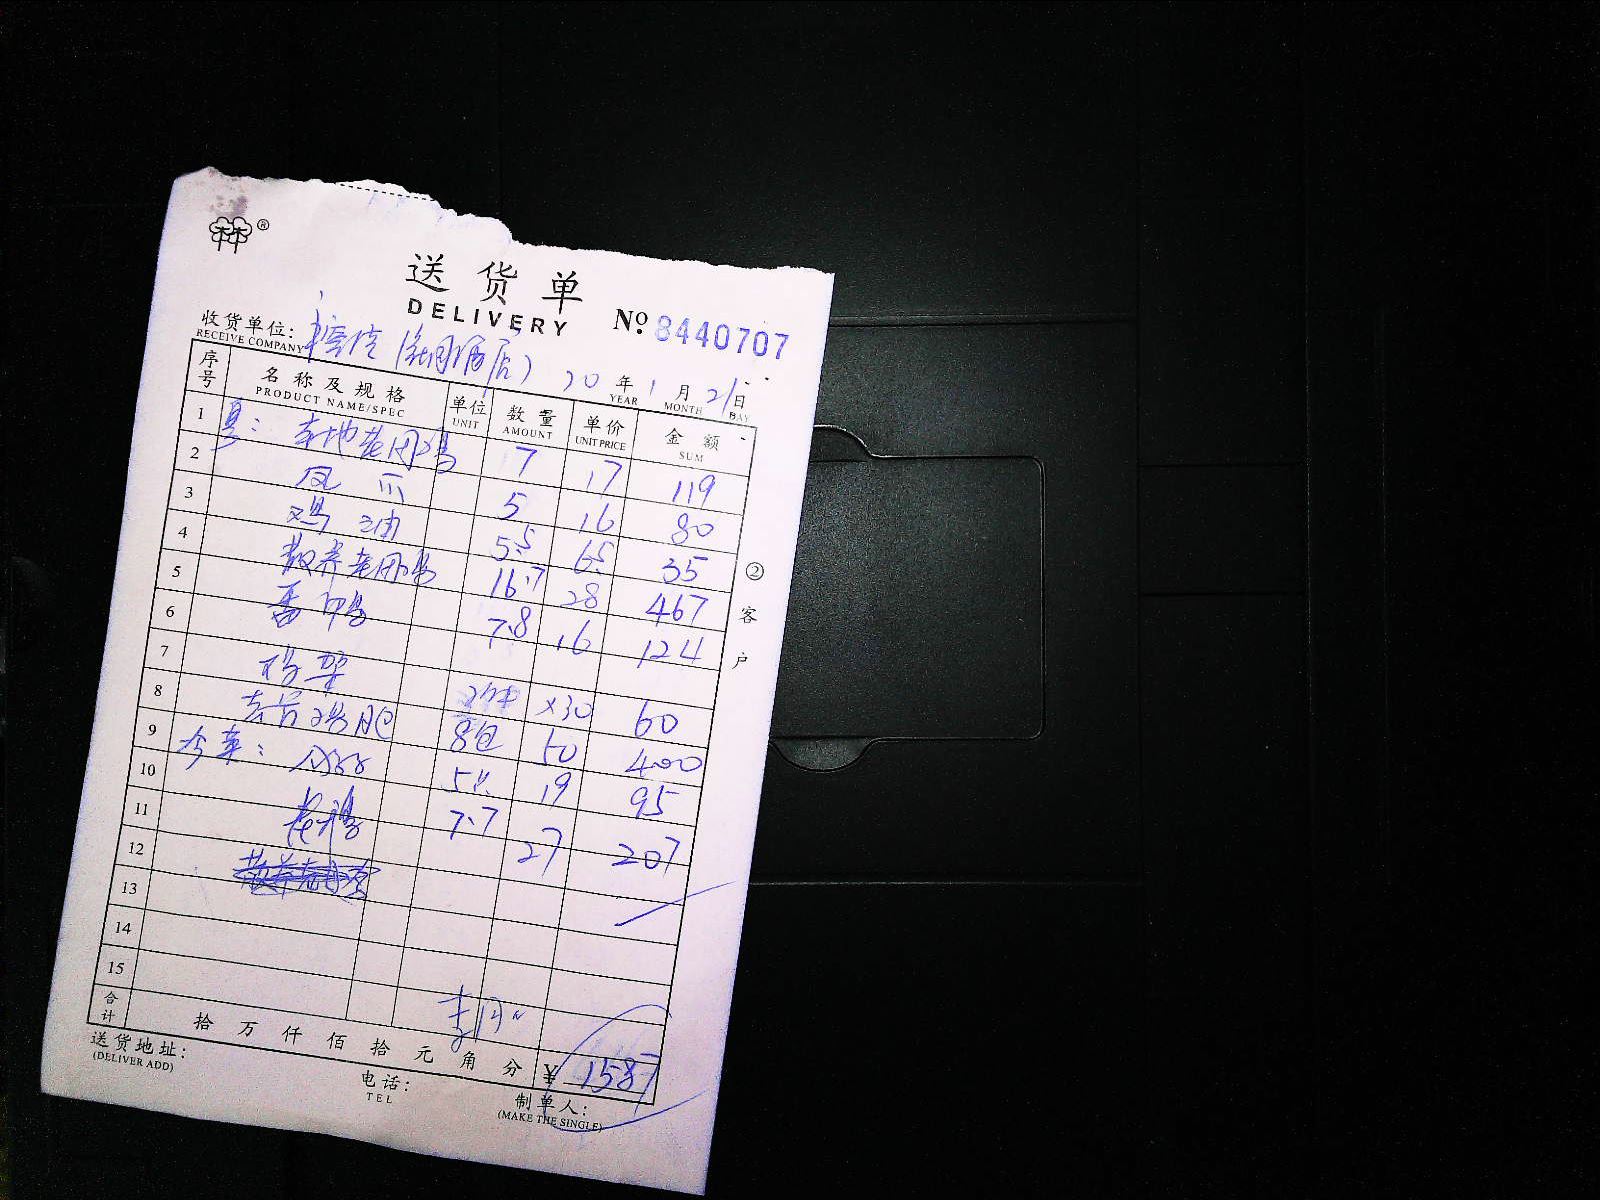 林林®
送货单
DELIVERY № 8440707
收货单位:
RECEIVE COMPANY
20 年 1 月 21 日
YEAR MONTH DAY
序号 名称及规格 单位 数量 单价 金额
PRODUCT NAME/SPEC UNIT AMOUNT UNIT PRICE SUM
1 本地老母鸡 7 17 119
2 凤爪 5 16 80
3 鸡油 5.5 6.5 35
4 散养老母鸡 16.7 28 467
5 番鸭 7.8 16 124
6
7 鸡架 2件 ×30 60
8 去骨鸡 8包 50 400
9 5只 19 95
10 老鸡 7.7 27 207
11
12
13
14
15
合计 拾 万 仟 佰 拾 元 角 分 ¥ 1587
送货地址:
(DELIVER ADD)
电话:
TEL
制单人:
(MAKE THE SINGLE)
②客户